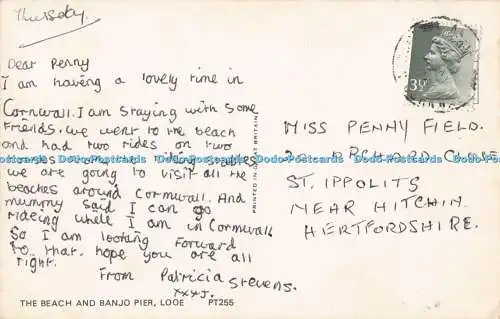 Thursday
Dear Penny
I am having a lovely time in
Cornwall. I am staying with some
friends. we went to the beach
and had two rides on two
we are going to visit all the
beaches around Cornwall. And
mummy said I can go
rideing while I am in Cornwall
So I am looking forward
to that. hope you are all
right.
From Patricia Stevens.
xxx
PRINTED IN GREAT BRITAIN
3½
MISS PENNY FIELD.
ORCHARD CLOSE
ST. IPPOLITS
NEAR HITCHIN
HERTFORDSHIRE.
THE BEACH AND BANJO PIER, LOOE PT255
Dodo-Postcards Dodo-Postcards Dodo-Postcards Dodo-Postcards Dodo-Postcards Dodo-Postcards